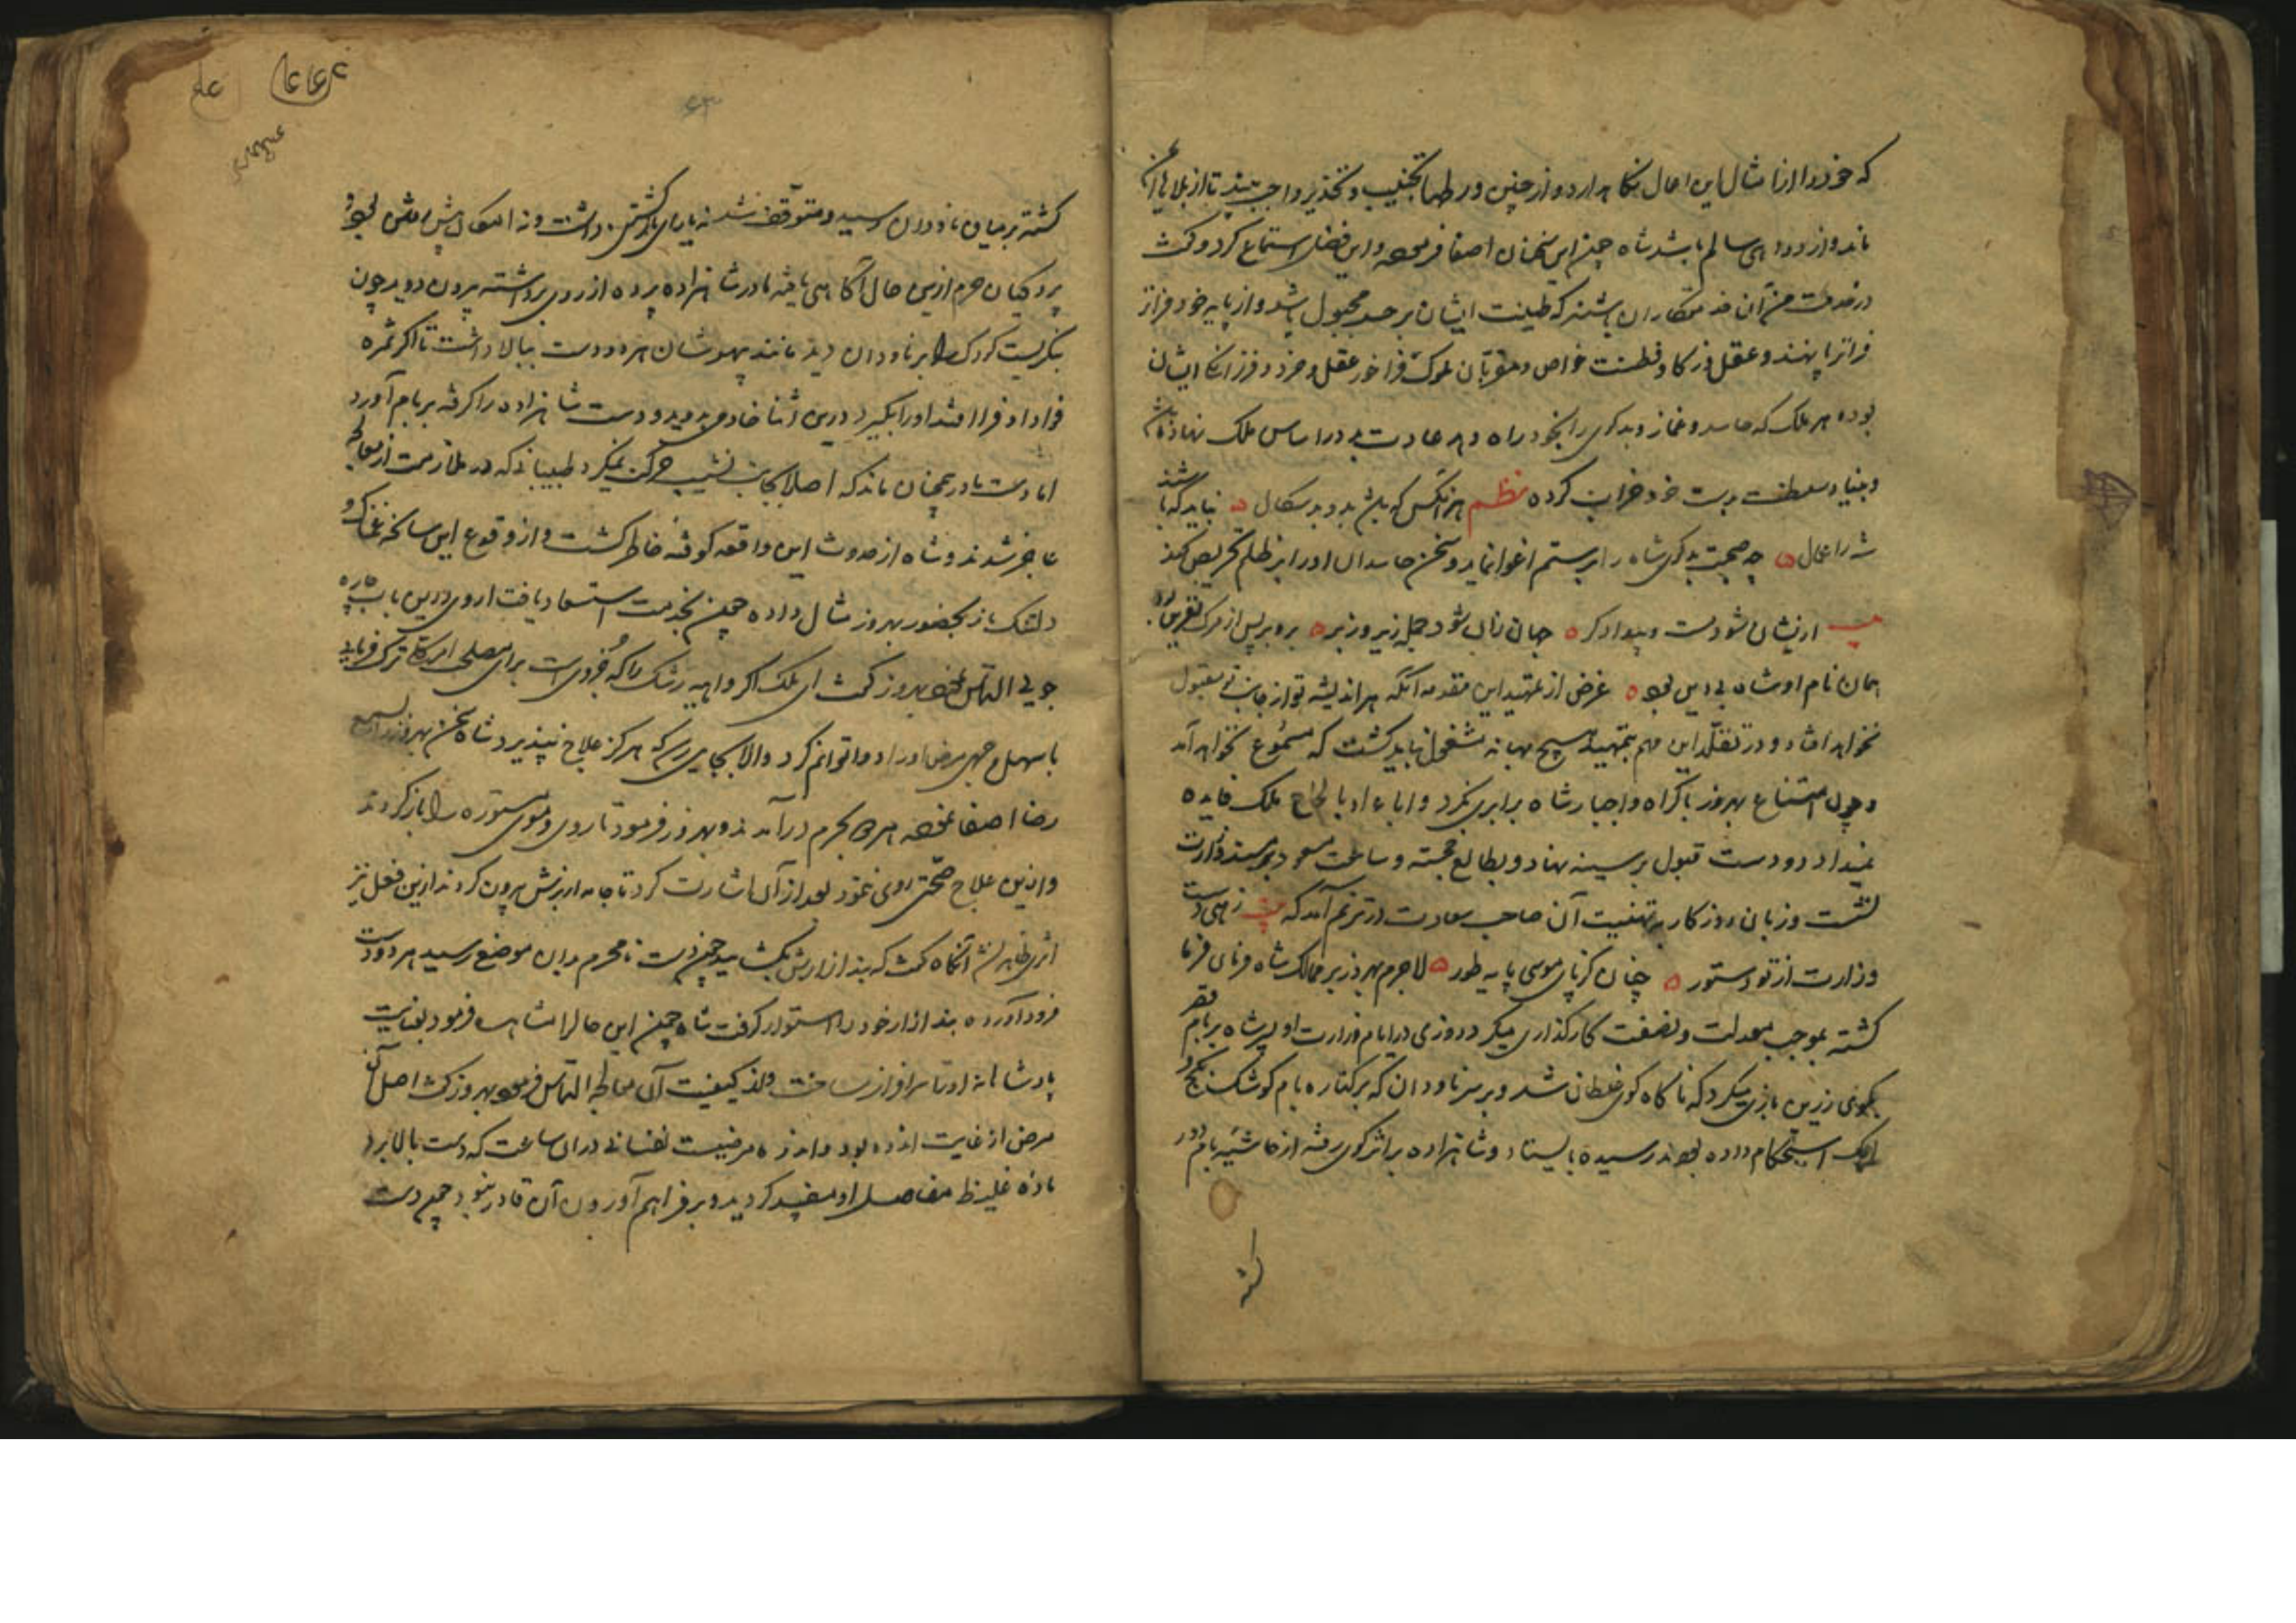 که خود را از امثال این اعمال نگاه دارد و از چنین ورطها تجنیب و تحذیر واجب بیند تا از بلاهای آن
ماند و از دواهی سالم باشد شاه چون این سخنان اصغا فرمود و این فصل استماع کرد و گفت
در خدمت من آن خدمتکاران باشند که طینت ایشان بر حسد مجبول باشد و از پایه خود فراتر
فراتر پا نهند و عقل و ذکا و فطنت خواص و مقربان ملوک فراخور عقل و خرد و فرزانگی ایشان
بوده هر ملک که حاسد و غماز و بدگوی را بخود راه دهد عادت بد در اساس ملک نهاده باشد
و بنیاد سلطنت بدست خود خراب کرده نظم هر آنکس که باشد بد و بدسگال نباید که باشد
شه را عمال چه صحبت بدگوی شاه را بر ستم اغوا نماید و سخن حاسدان او را بر ظلم تحریص کند
ار نشان شود دست بیدادگر جهان زان شود جمله زیر و زبر برو بر پس از مرگ نفرین بود
همان نام او شاه بی دین بود غرض از تمهید این مقدمه آنکه هر اندیشه تو از جانب تو مقبول
نخواهد افتاد و در تقلد این مهم بتمهید هیچ بهانه مشغول نباید گشت که مسموع نخواهد آمد
و چون امتناع بهروز با اکراه و اجبار شاه برابری نکرد و اباء او با الحاح ملک فایده
نمیداد دو دست قبول بر سینه نهاد و بطالع خجسته و ساعت مسعود بر مسند وزارت
نشست و زبان روزگار به تهنیت آن صاحب سعادت در ترنم آمد که بیت زهی دست
وزارت از تو دستور چنان کز پای موسی پایه طور لاجرم بهروز بر ممالک شاه فرمان فرما
گشته بموجب معدلت و نصفت کارگذاری میکرد روزی در ایام وزارت او پسر شاه بر بام قصر
بگوی زرین بازی میکرد که ناگاه گوی غلطان شد و بر سر ناودان که بر کناره بام کوشک
استحکام داده بودند رسیده بایستاد و شاهزاده بر اثر گوی رفته از حاشیه بام
گشته
۶۳
گشته بر میان ناودان رسید و متوقف شد نه یارای بازگشتن داشت و نه امکان پیش رفتن بود
پردگیان حرم ازین حال آگاهی یافته مادر شاهزاده پرده از روی برداشته بیرون دوید چون
بنگریست کودک را بر ناودان دید مانند بیهوشان هر دو دست ببالا داشت تا اگر ثمره
فواد او فرا افتد او را بگیرد درین اثنا خادمی بدوید و دست شاهزاده را گرفته بر بام آورد
اما دست مادر همچنان ماند که اصلا بجانب نشیب حرکت نمیکرد طبیبانی که در ملازمت از معالجه
عاجز شدند و شاه از حدوث این واقعه کوفته خاطر گشت و از وقوع این سانحه غمناک و
دلتنگ باز بحضور بهروز مثال داده چون بخدمت استسعاد یافت از وی درین باب چاره
جویی التماس نمود بهروز گفت ای ملک اگر واهیه رشک را که ضروریست برای مصلحت اندک ترک فرماید
باسهل وجهی مرض او را دوا توانم کرد والا بجایی رسد که هرگز علاج نپذیرد شاه سخن بهروز را بسمع
رضا اصغا نموده همراه بحرم درآمدند و بهروز فرمود تا روی و موی مستوره را باز کردند
و ازین علاج صحتی روی ننمود بعد از آن اشارت کرد تا جامه از برش بیرون کردند ازین فعل نیز
اثری ظاهر نشد آنگاه گفت که بند ازارش بگشایید چون دست نامحرم بدان موضع رسید هر دو دست
فرود آورده بند ازار خود را استوار گرفت شاه چون این حال را مشاهده فرمود بعنایت
پادشاهانه او را سرافراز ساخت و از کیفیت آن معالجه التماس فرمود بهروز گفت اصل آن
مرض از غایت اندوه بود و اندوه مرضیست نفسانی در آن ساعت که دست بالا برد
ماده غلیظ مفاصل او مفسد گردید و بر فراهم آوردن آن قادر نبود چون دست